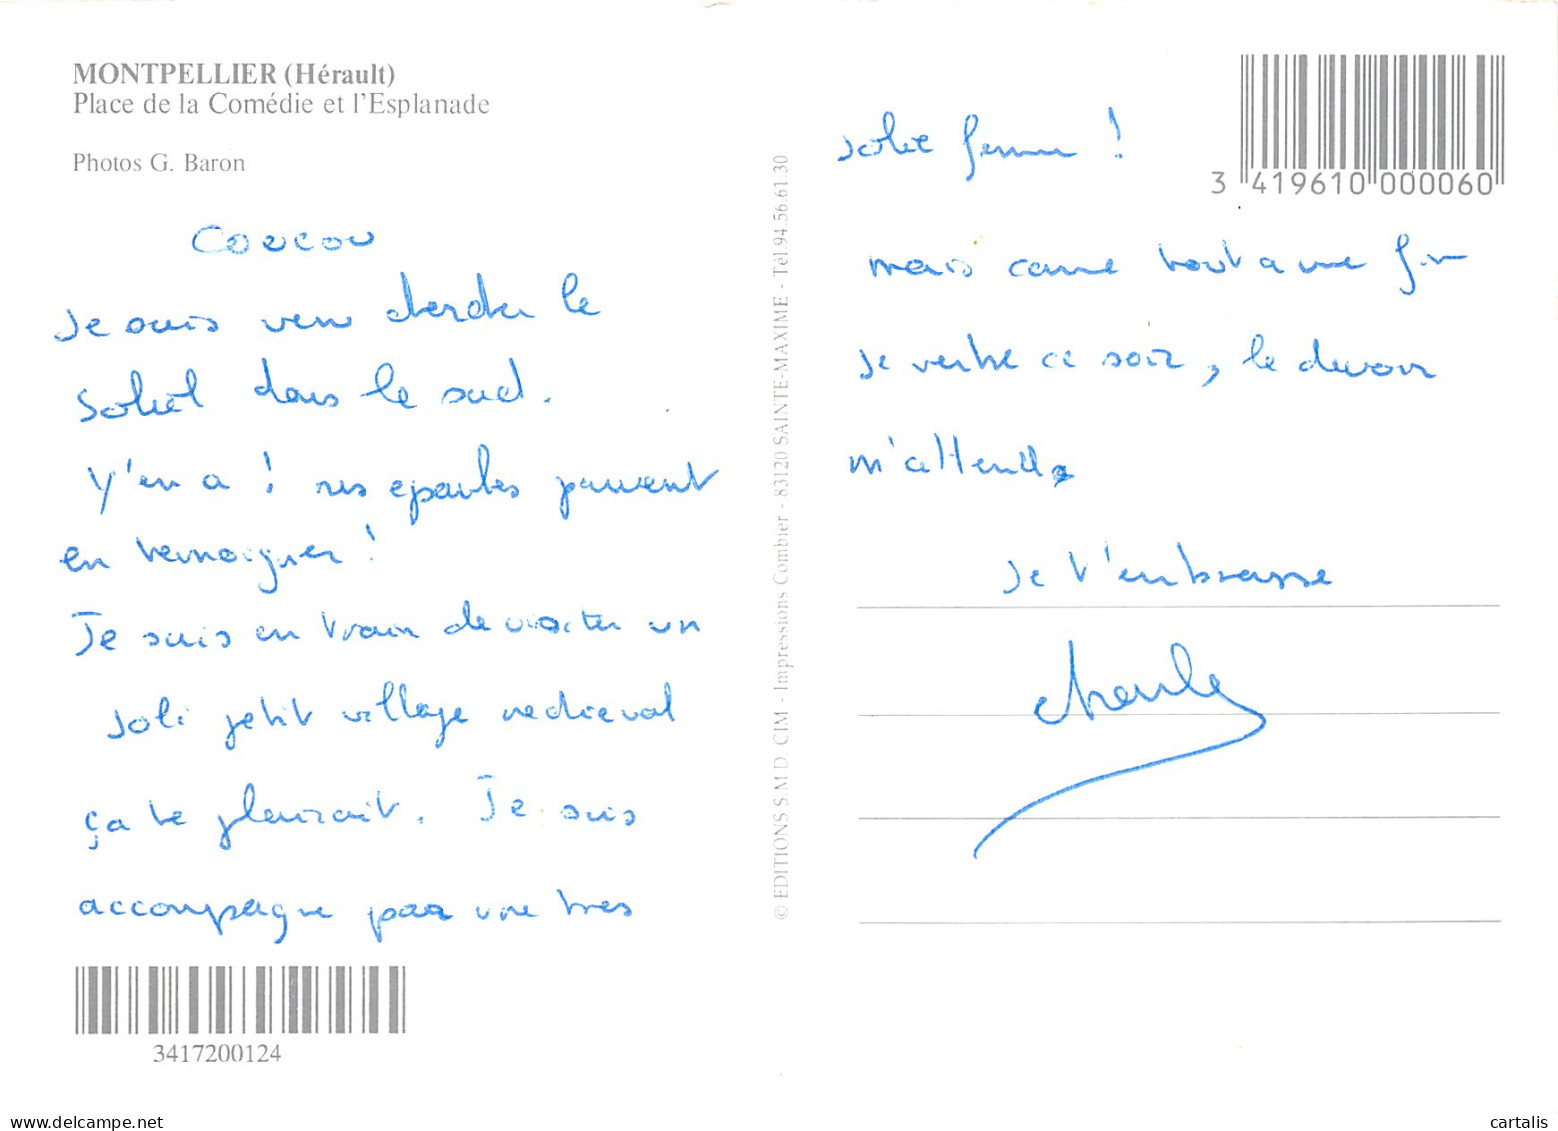 MONTPELLIER (Hérault)
Place de la Comédie et l'Esplanade
Photos G. Baron
Coucou
Je suis venu chercher le
soleil dans le sud.
Y'en a ! mes epaules peuvent
en temoigner !
Je suis en train de visiter un
joli petit village medieval
ça te plairait. Je suis
accompagne par une tres
3417200124
© EDITIONS S.M.D CIM - Impressions Combier - 83120 SAINTE-MAXIME - Tél 94.56.61.30
3 419610 000060
jolie femme !
mais comme tout a une fin
je rentre ce soir, le devoir
m'attend
Je t'embrasse
cartalis
www.delcampe.net